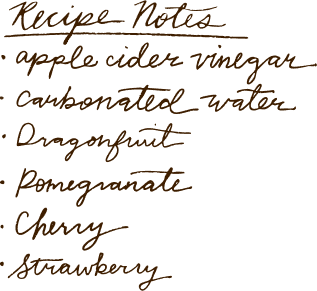 Recipe Notes
· apple cider vinegar
· Carbonated water
· Dragonfruit
· Pomegranate
· Cherry
· Strawberry